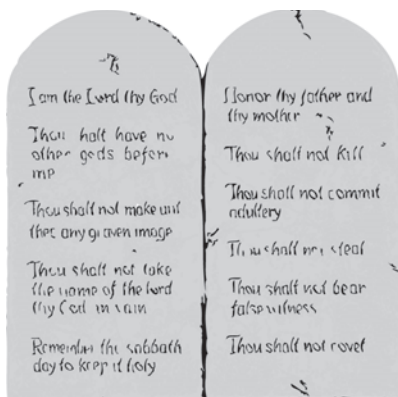 I am the Lord thy God
Thou halt have no
other gods before
me
Thou shalt not make unt
thee any graven image
Thou shalt not take
the name of the Lord
thy God in vain
Remember the sabbath
day to keep it holy
Honor thy father and
thy mother
Thou shalt not kill
Thou shalt not commit
adultery
Thou shalt not steal
Thou shalt not bear
false witness
Thou shalt not covet